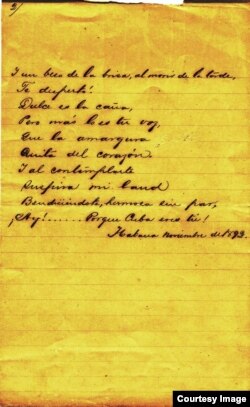 2/
I un beso de la brisa, al morir de la tarde,
Te despertó!
Dulce es la caña,
Pero más lo es tu voz,
Que la amargura
Quita del corazón,
I al contemplarte
Suspira mi laud
Bendiciéndote, hermosa sin par,
¡Ay!...... Porque Cuba eres tú!
Habana Noviembre de
Courtesy Image